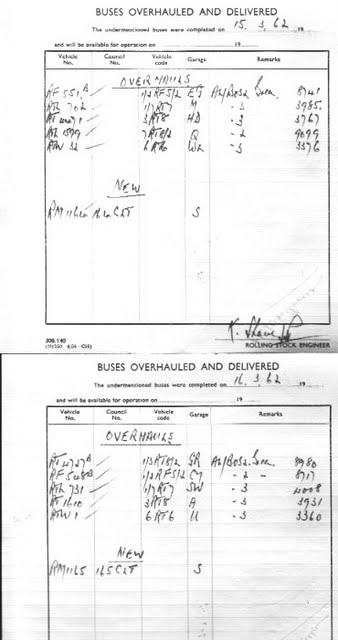 BUSES OVERHAULED AND DELIVERED
The undermentioned buses were completed on 15.3.62 19
and will be available for operation on 19
Vehicle No. Council No. Vehicle code Garage Remarks
OVERHAULS
RF 551 1/2RF5/2 A2/BOS2 8741
RTL 702 1/7RT7 M -3 3985
3RT8 HD -3 3767
RTL 1599 7RT8/2 Q -2 9099
RTW 32 6RT6 -3 3376
NEW
S
ROLLING STOCK ENGINEER
BUSES OVERHAULED AND DELIVERED
The undermentioned buses were completed on 16.3.62 19
and will be available for operation on 19
Vehicle No. Council No. Vehicle code Garage Remarks
OVERHAULS
RT 4727 1/3RT8/2 GR A2/BOS2 8980
1/2RF5/2 CY -2 - 8717
RTL 731 1/7RT7 SW -3 4008
RT 1610 3RT8 A -3 3931
RTW 1 6RT6 U -3 3360
NEW
RM1165 165CLT S